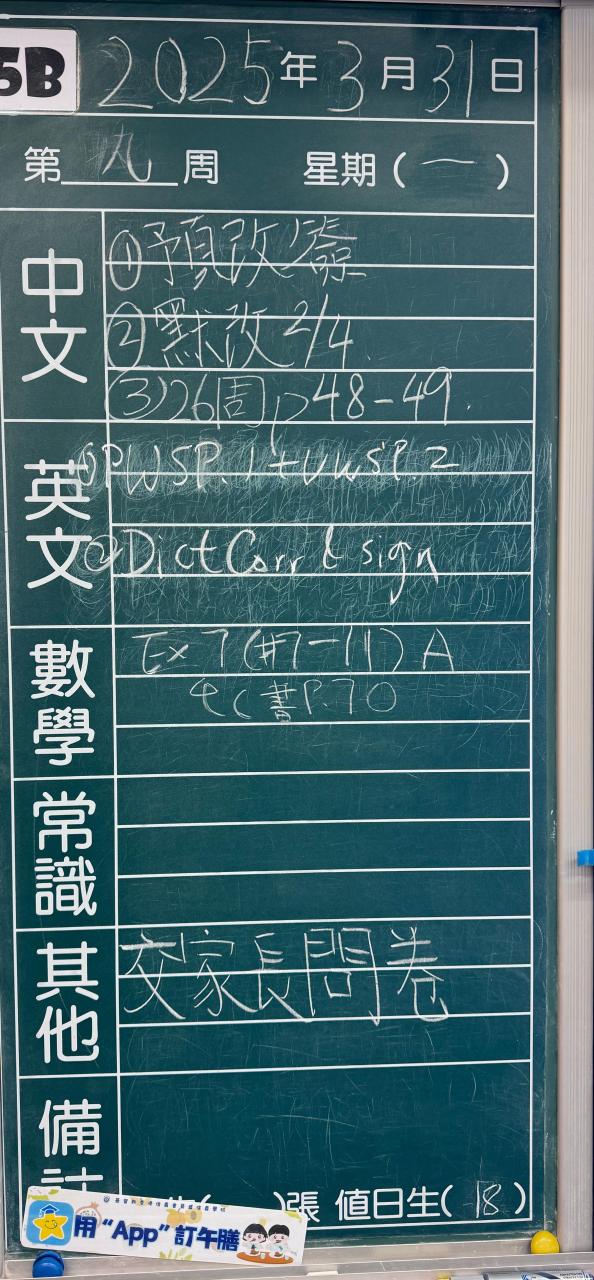 5B 2025年3月31日
第九周 星期(一)
中文
①預改簽
②默改2/4.
③26周p48-49.
英文
①PWSP.1+VWSP.2
②Dict Corr & sign
數學
Ex7(#7-11)A
書P.70
常識
其他
交家長問卷
備
張 值日生(18)
用“App”訂午膳